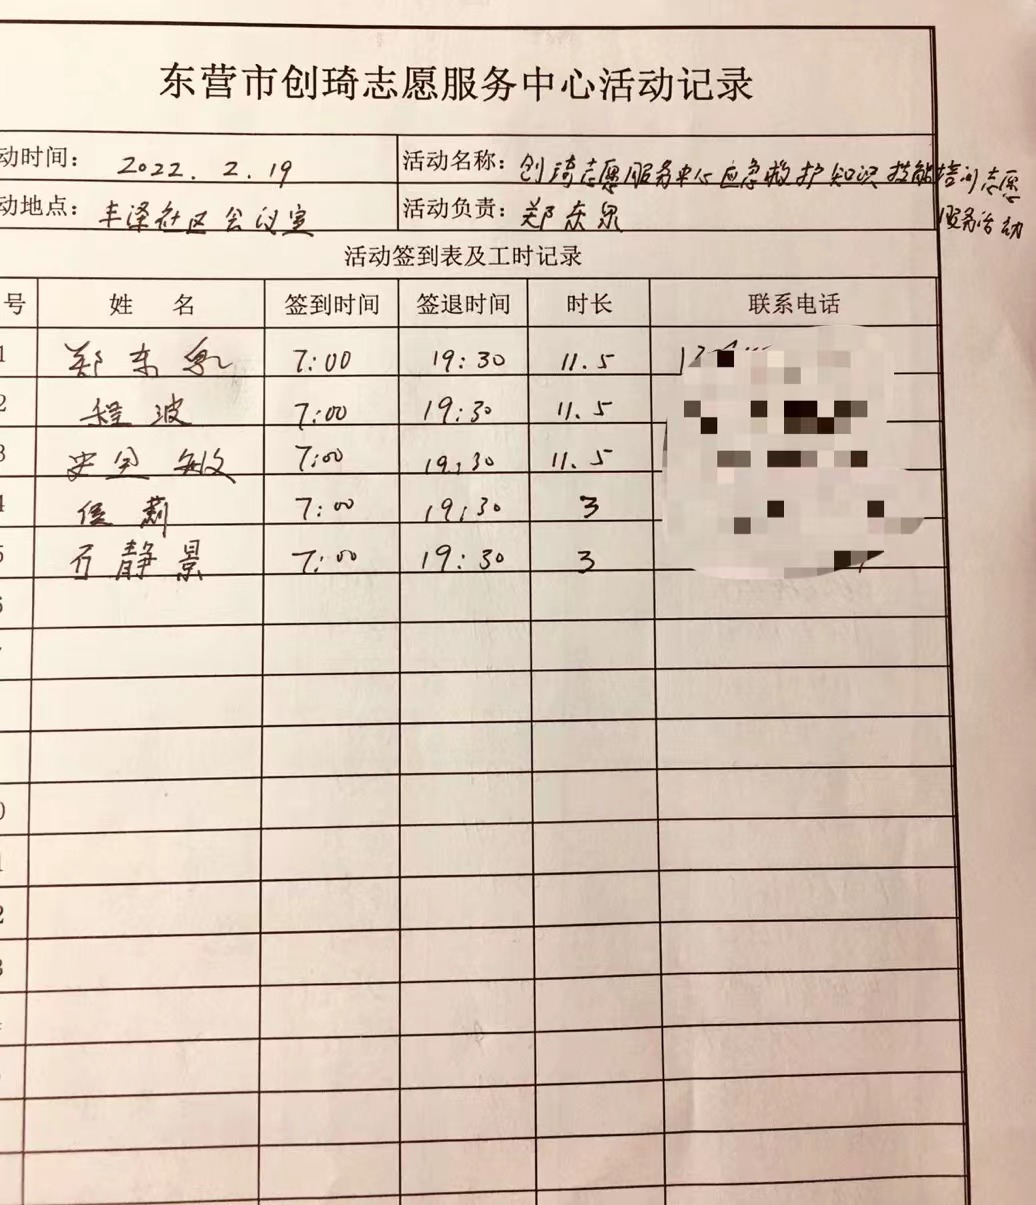 东营市创琦志愿服务中心活动记录
动时间： 2022. 2. 19 活动名称： 创琦志愿服务中心应急救护知识技能培训志愿
服务活动
动地点： 丰泽社区会议室 活动负责： 郑
活动签到表及工时记录
号 姓 名 签到时间 签退时间 时长 联系电话
1 郑东 7:00 19:30 11.5
2 程波 7:00 19:30 11.5
3 安 敏 7:00 19:30 11.5
4 莉 7:00 19:30 3
5 静景 7:00 19:30 3